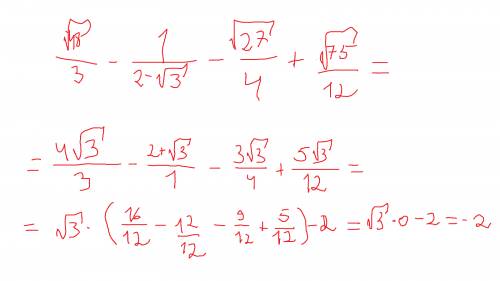 √48/3 - 1/(2-√3) - √27/4 + √75/12 =
= 4√3/3 - (2+√3)/1 - 3√3/4 + 5√3/12 =
= √3 · (16/12 - 12/12 - 9/12 + 5/12) - 2 = √3 · 0 - 2 = -2